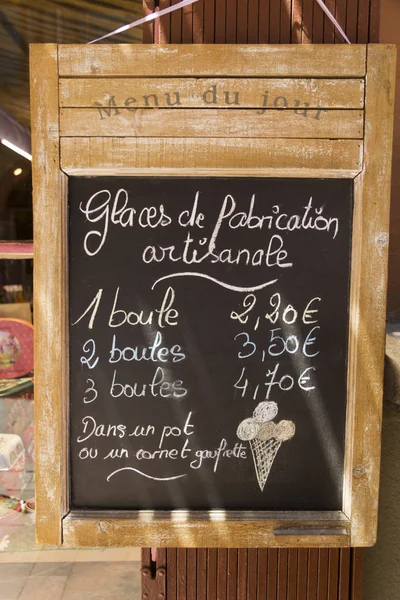 Menu du jour
Glaces de fabrication
artisanale
1 boule 2,20€
2 boules 3,50€
3 boules 4,70€
Dans un pot
ou un cornet gaufrette